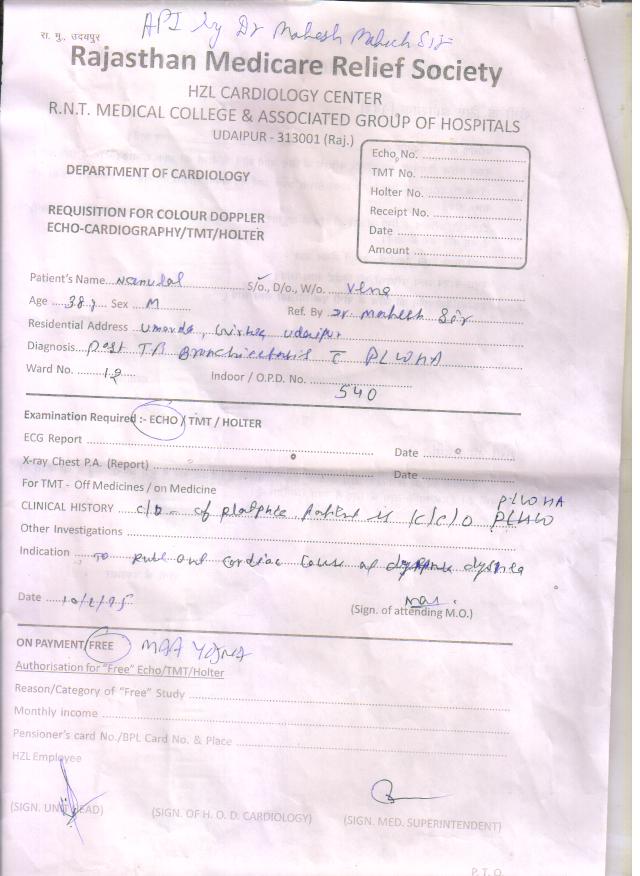 रा. मु., उदयपुर
API by Dr Mahesh Sir
Rajasthan Medicare Relief Society
HZL CARDIOLOGY CENTER
R.N.T. MEDICAL COLLEGE & ASSOCIATED GROUP OF HOSPITALS
UDAIPUR - 313001 (Raj.)
Echo. No.
TMT No.
Holter No.
Receipt No.
Date
Amount
DEPARTMENT OF CARDIOLOGY
REQUISITION FOR COLOUR DOPPLER
ECHO-CARDIOGRAPHY/TMT/HOLTER
Patient's Name Nanulal S/o., D/o., W/o. Vena
Age 38 y Sex M Ref. By Dr Mahesh Sir
Residential Address Umarda, udaipur
Diagnosis Post TB Bronchiectasis c PLWHA
Ward No. 12 Indoor / O.P.D. No.
540
Examination Required :- ECHO / TMT / HOLTER
ECG Report Date
X-ray Chest P.A. (Report) Date
For TMT - Off Medicines / on Medicine
PLWHA
CLINICAL HISTORY c/o of patient is k/c/o
Other Investigations
Indication To rule out cardiac cause of dyspnea
Date
(Sign. of attending M.O.)
ON PAYMENT/FREE MAA YOJNA
Authorisation for "Free" Echo/TMT/Holter
Reason/Category of "Free" Study
Monthly income
Pensioner's card No./BPL Card No. & Place
HZL Employee
(SIGN. UNIT HEAD) (SIGN. OF H. O. D. CARDIOLOGY) (SIGN. MED. SUPERINTENDENT)
P. T. O.